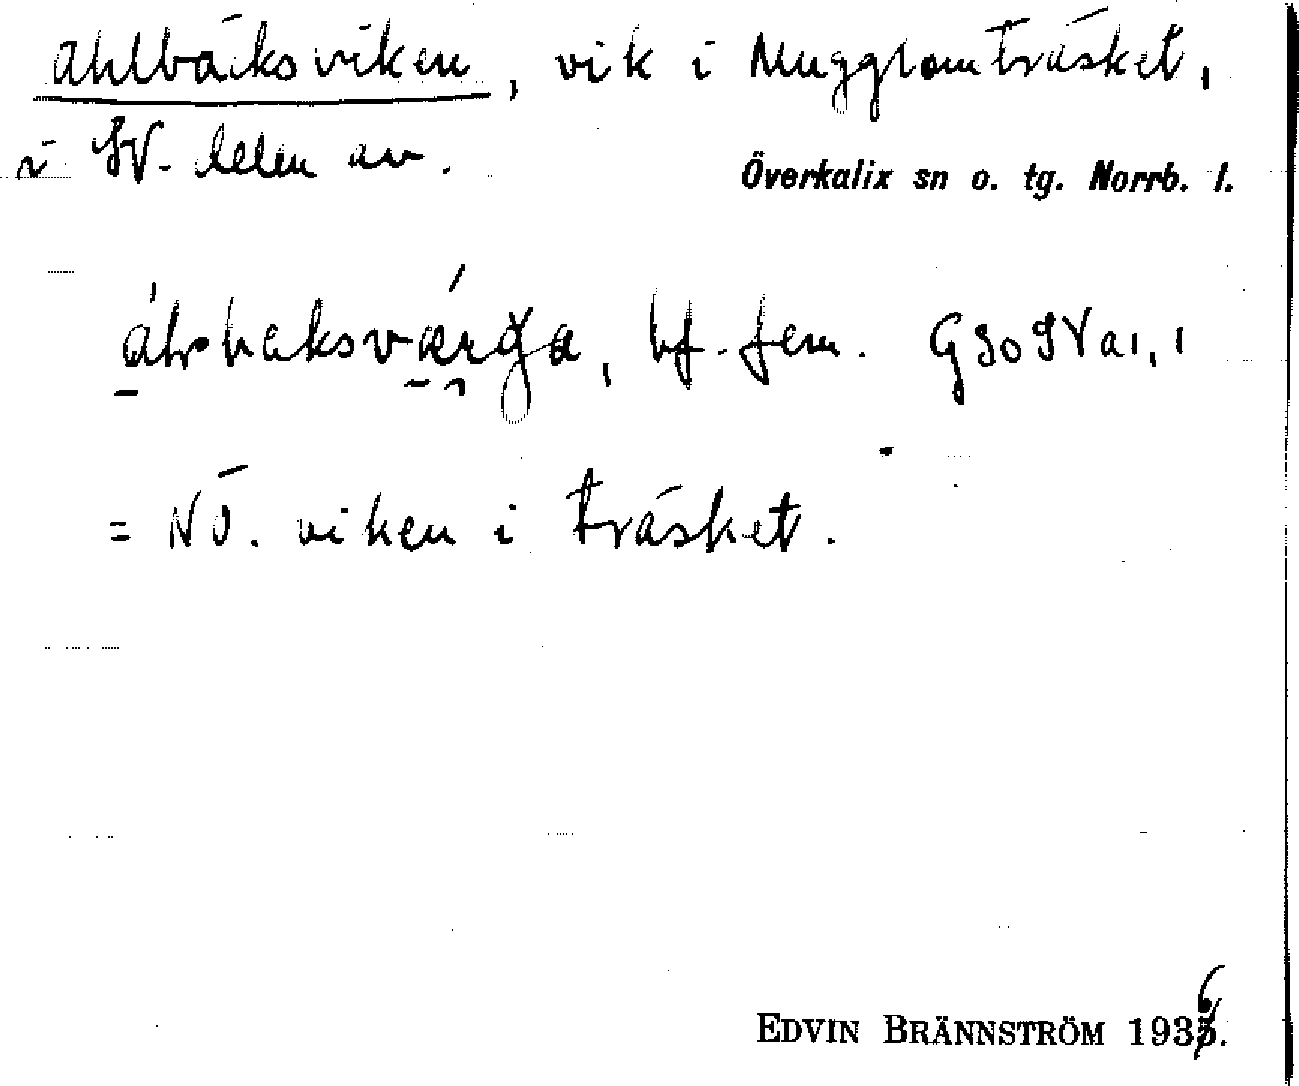 Ahlbäcksviken, vik i Mugglomträsket,
i SV. delen av.
Överkalix sn o. tg. Norrb. l.
bf. fem. G30 SVa1,1
= NÖ. viken i träsket.
EDVIN BRÄNNSTRÖM 1936.